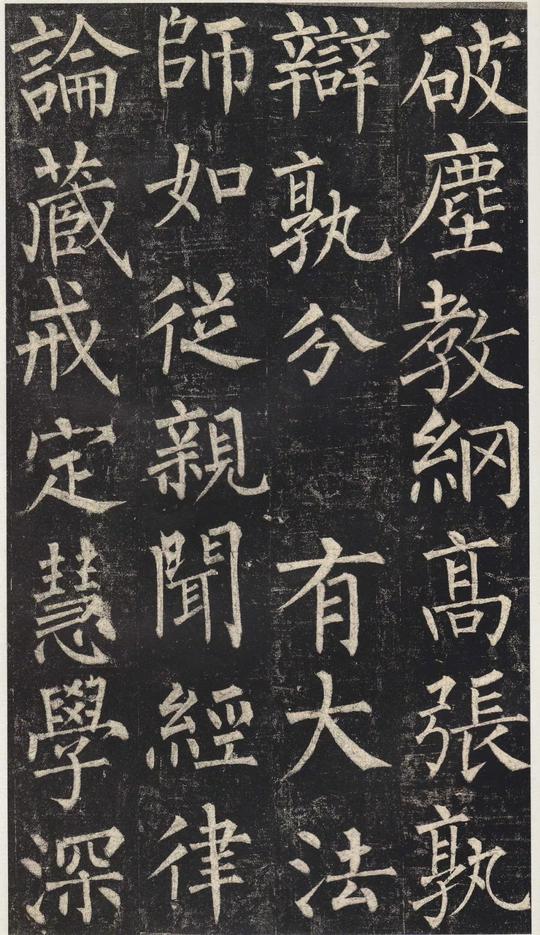 破塵教網高張孰
辯孰分　有大法
師如從親聞經律
論藏戒定慧學深